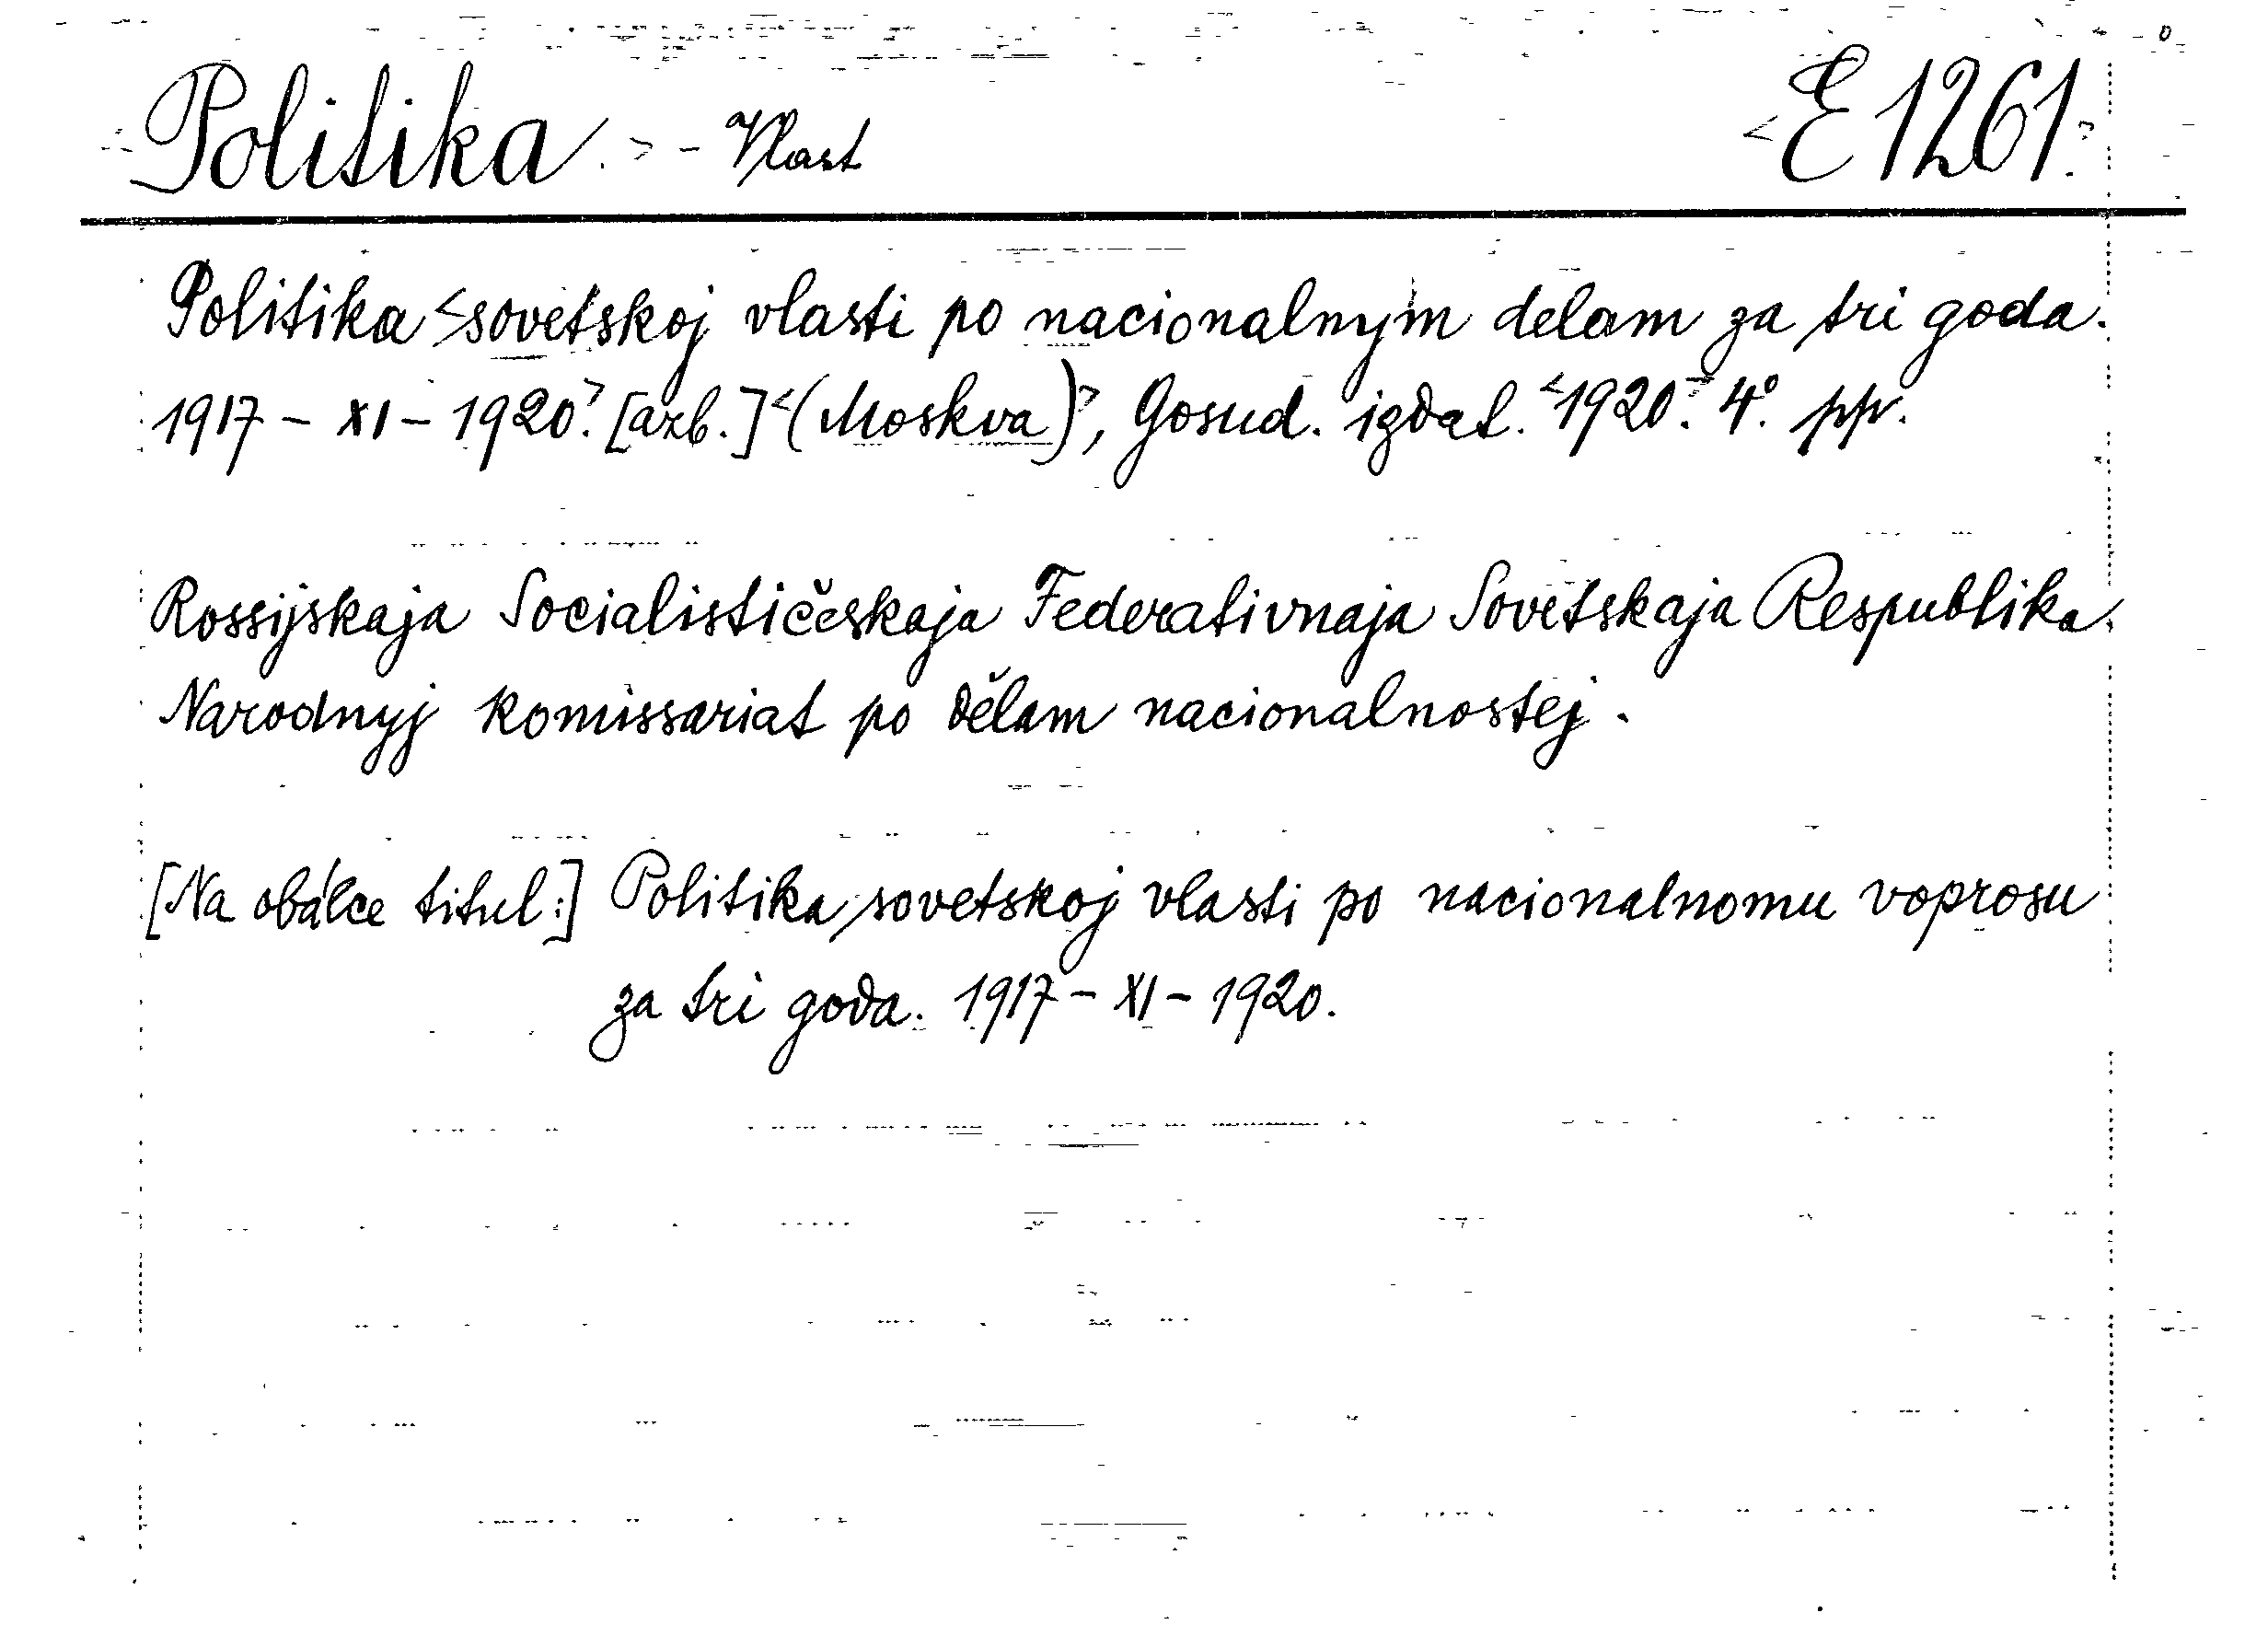 <Politika.> - Vlast <E 1261.>
Politika <sovětskoj vlasti po nacionalnym delam za tri goda.
1917 - XI - 1920.> [azb.] <(Moskva)>, Gosud. izdat. <1920.> 4°. pp.
Rossijskaja Socialističeskaja Federativnaja Sovětskaja Respublika.
Narodnyj komissariat po dělam nacionalnostej.
[Na obálce titul:] Politika sovetskoj vlasti po nacionalnomu voprosu
za tri goda. 1917 - XI - 1920.